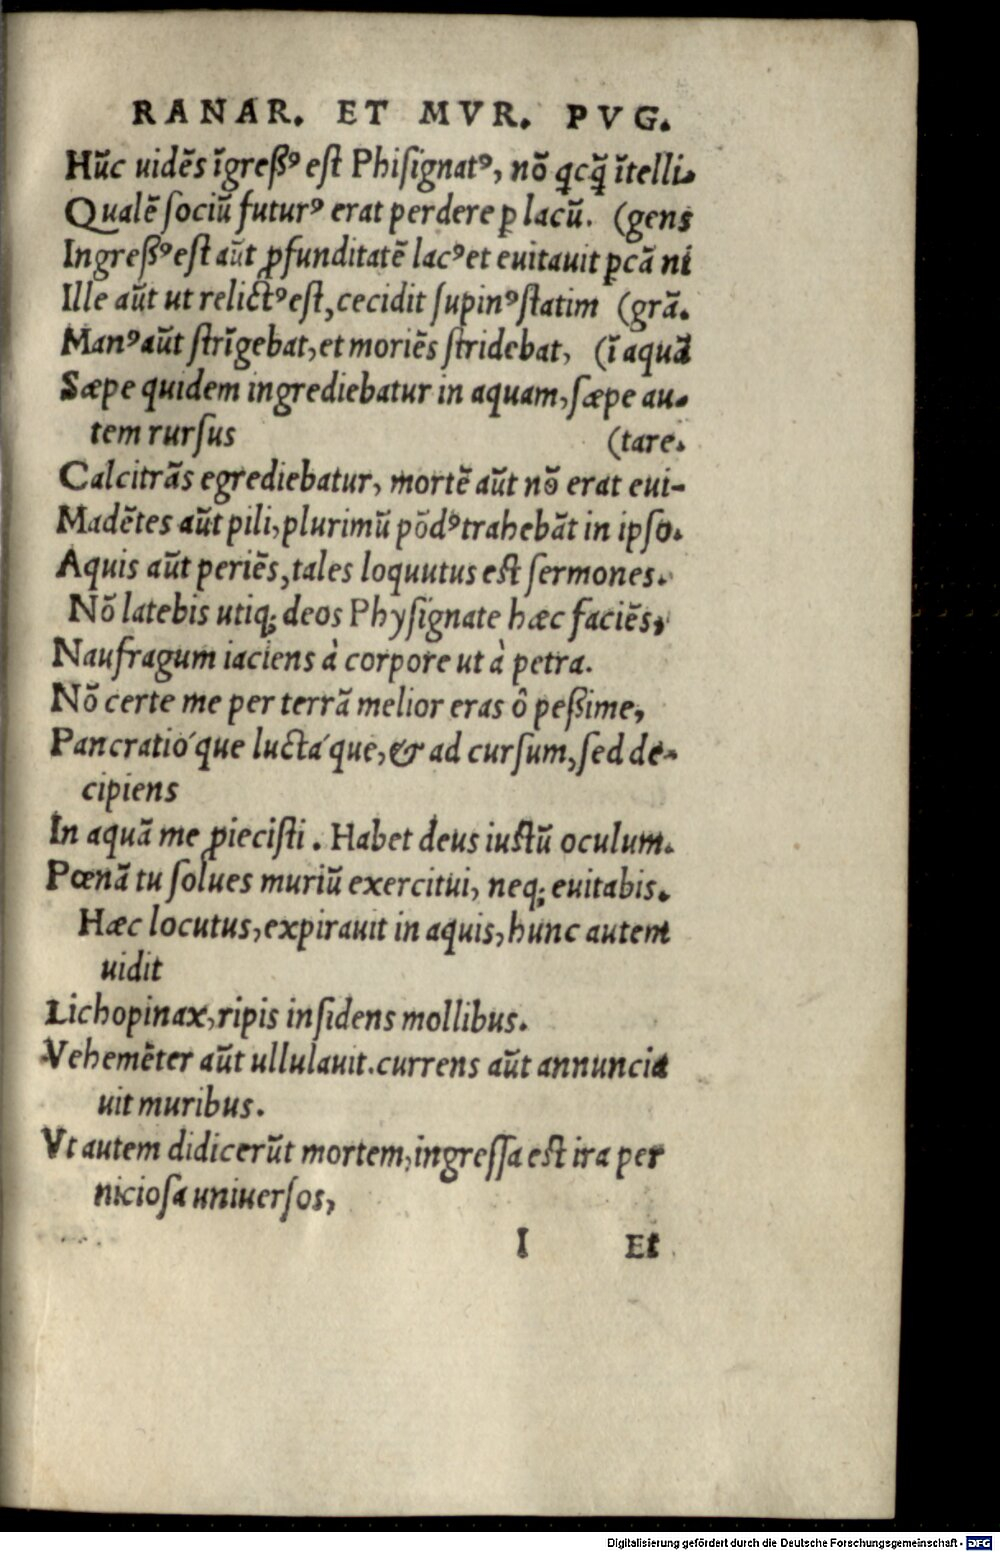 RANAR. ET MVR. PVG.
Hūc uidēs īgreßꝰ est Phiſignatꝰ, nō qcq̄ ītelli-
Qualē ſociū futurꝰ erat perdere ꝑ lacū. (gens
Ingreßꝰ est aūt ꝓfunditatē lacꝰ et euitauit ꝑcā ni
Ille aūt ut relictꝰ est, cecidit ſupinꝰ ſtatim (grā.
Manꝰ aūt ſtrīgebat, et moriēs ſtridebat, (ī aquā
Sæpe quidem ingrediebatur in aquam, ſæpe au-
tem rurſus (tare.
Calcitrās egrediebatur, mortē aūt nō erat eui-
Madētes aūt pili, plurimū pōdꝰ trahebāt in ipſo.
Aquis aūt periēs, tales loquutus est ſermones.
Nō latebis utiq; deos Phyſignate hæc faciēs,
Naufragum iaciens à corpore ut à petra.
Nō certe me per terrā melior eras ô peßime,
Pancratió que luctá que, & ad curſum, ſed de-
cipiens
In aquā me ꝓiecisti. Habet deus iustū oculum.
Pœnā tu ſolues muriū exercitui, neq; euitabis.
Hæc locutus, expirauit in aquis, hunc autem
uidit
Lichopinax, ripis inſidens mollibus.
Vehemēter aūt ullulauit. currens aūt annuncia
uit muribus.
Vt autem didicerūt mortem, ingreſſa est ira per
nicioſa uniuerſos,
I Et
Digitalisierung gefördert durch die Deutsche Forschungsgemeinschaft - DFG